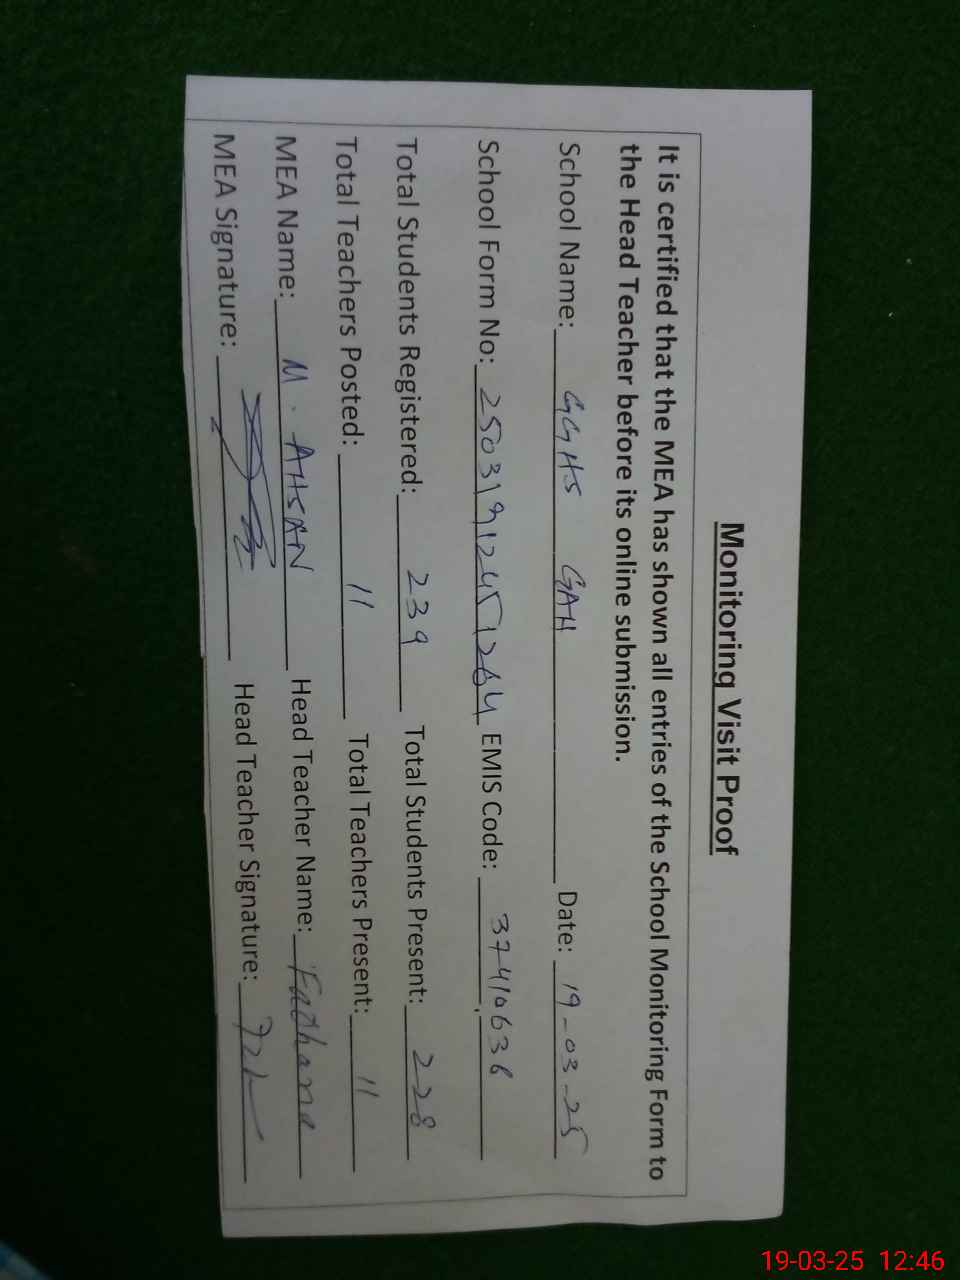 Monitoring Visit Proof
It is certified that the MEA has shown all entries of the School Monitoring Form to
the Head Teacher before its online submission.
School Name: GGHS GAH Date: 19-03-25
School Form No: 25031912451264 EMIS Code: 37410636
Total Students Registered: 239 Total Students Present: 228
Total Teachers Posted: 11 Total Teachers Present: 11
MEA Name: M. AHSAN Head Teacher Name: Farhana
MEA Signature: Head Teacher Signature:
19-03-25 12:46